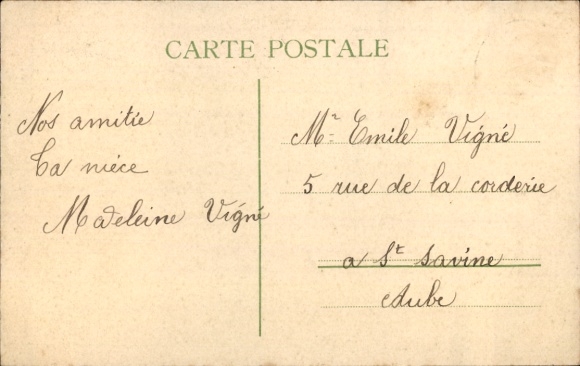 CARTE POSTALE
Nos amitie
Ta niéce
Madeleine Vigné
Mr Emile Vigné
5 rue de la corderie
a St Savine
Aube